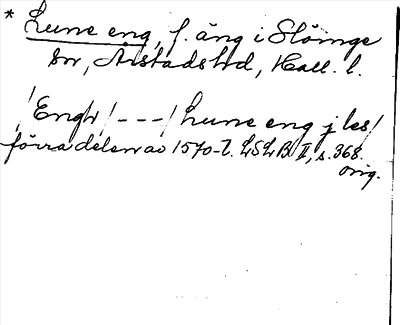 * Lune eng, f. äng i Slöinge
sn, Årstads hd, Hall. l.
/Engh/ --- / Lune eng j les/
förra delen av 1570-t. LSLB II, s. 368.
orig.